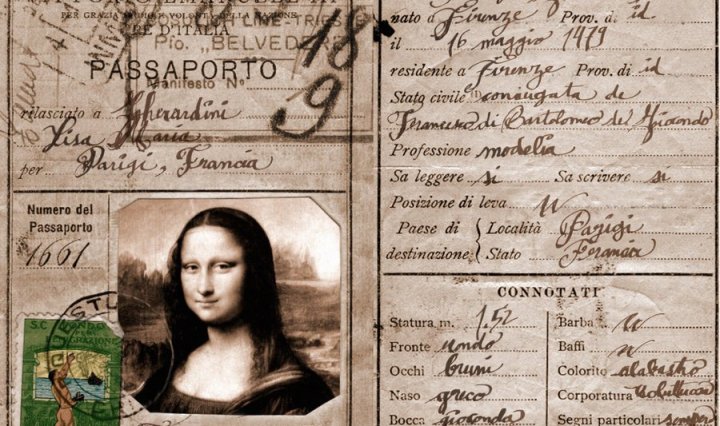 PER GRAZIA DI DIO E VOLONTÀ DELLA NAZIONE
RE D'ITALIA
TRIESTE
Pfo. „BELVEDERE
18
9
PASSAPORTO
Manifesto N°
rilasciato a Gherardini
Lisa Maria
per Parigi, Francia
Numero del
Passaporto
1661
nato a Firenze Prov. di id
il 16 maggio 1479
residente a Firenze Prov. di id
Stato civile coniugata de
Francesco di Bartolomeo del Giocondo
Professione modella
Sa leggere si Sa scrivere si
Posizione di leva
Paese di Località Parigi
destinazione Stato Francia
CONNOTATI
Statura m. 1.52
Fronte
Occhi bruni
Naso greco
Bocca gioconda
Barba
Baffi
Colorito alabastro
Corporatura
Segni particolari